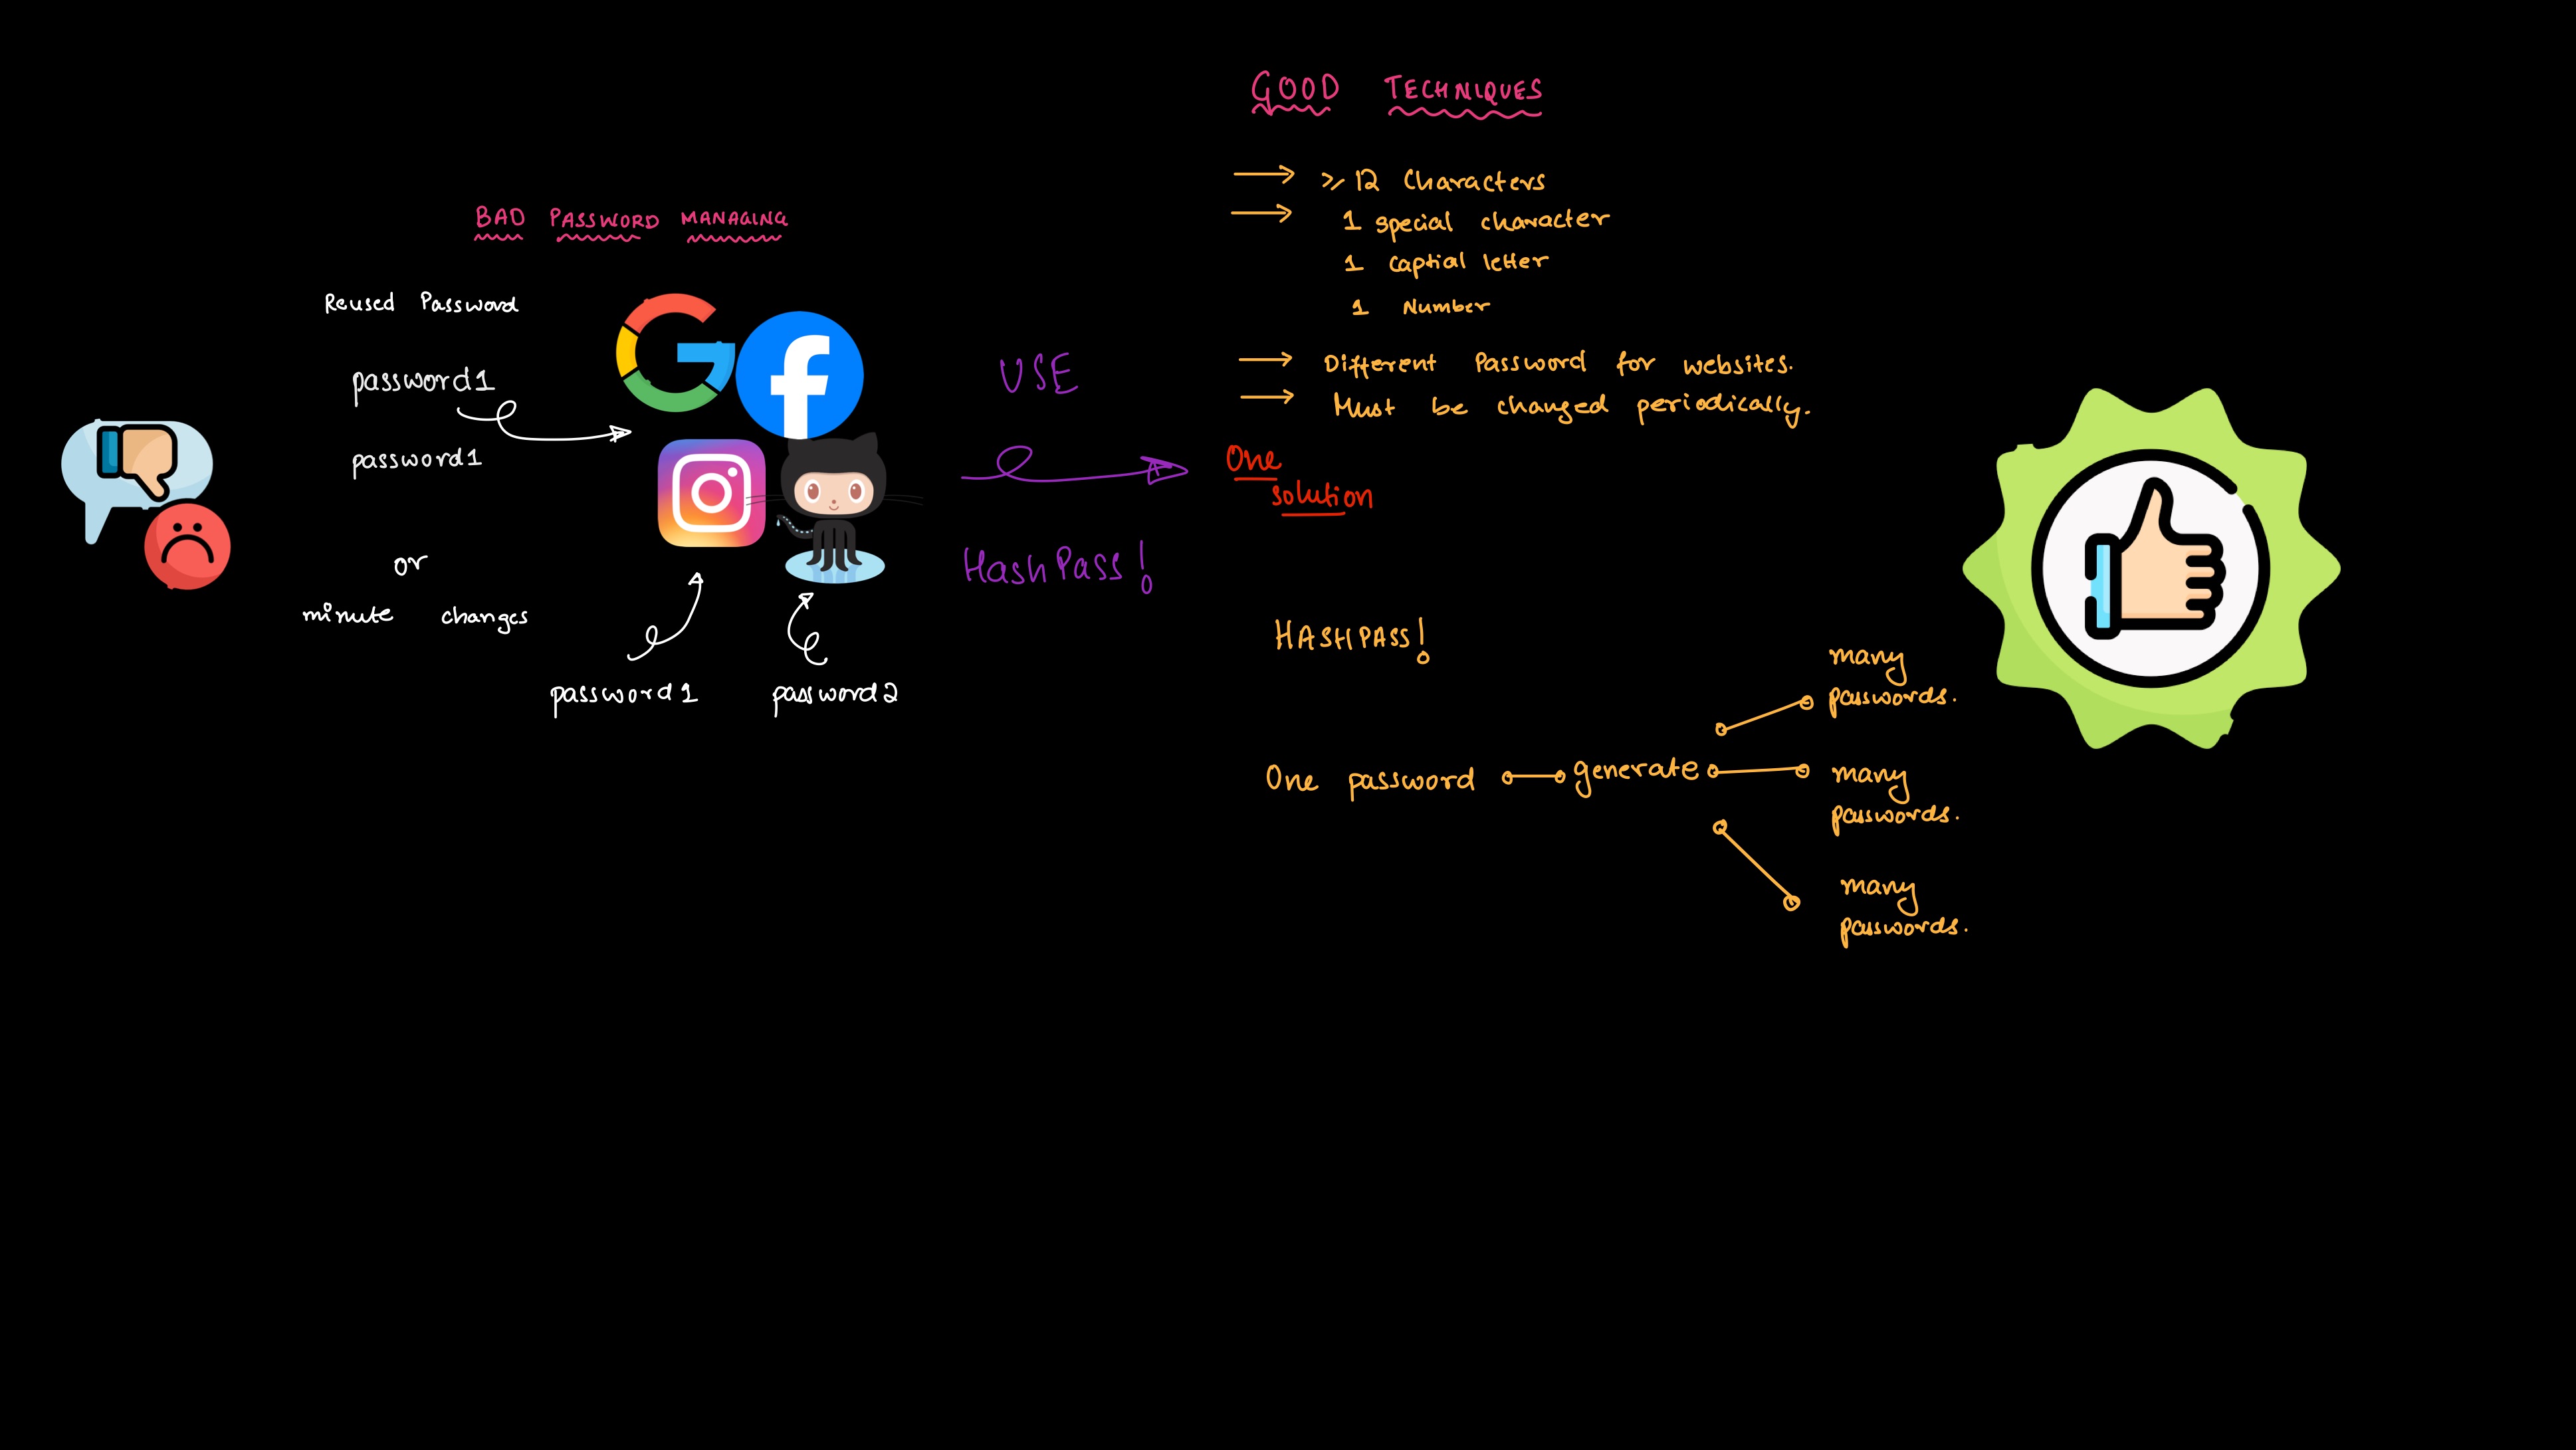 BAD PASSWORD MANAGING
Reused Password
password1
password1
or
minute changes
password1
password2
USE
HashPass!
GOOD TECHNIQUES
≥ 12 Characters
1 special character
1 Captial letter
1 Number
Different Password for websites.
Must be changed periodically.
One
solution
HASHPASS!
One password generate
many
passwords.
many
passwords.
many
passwords.